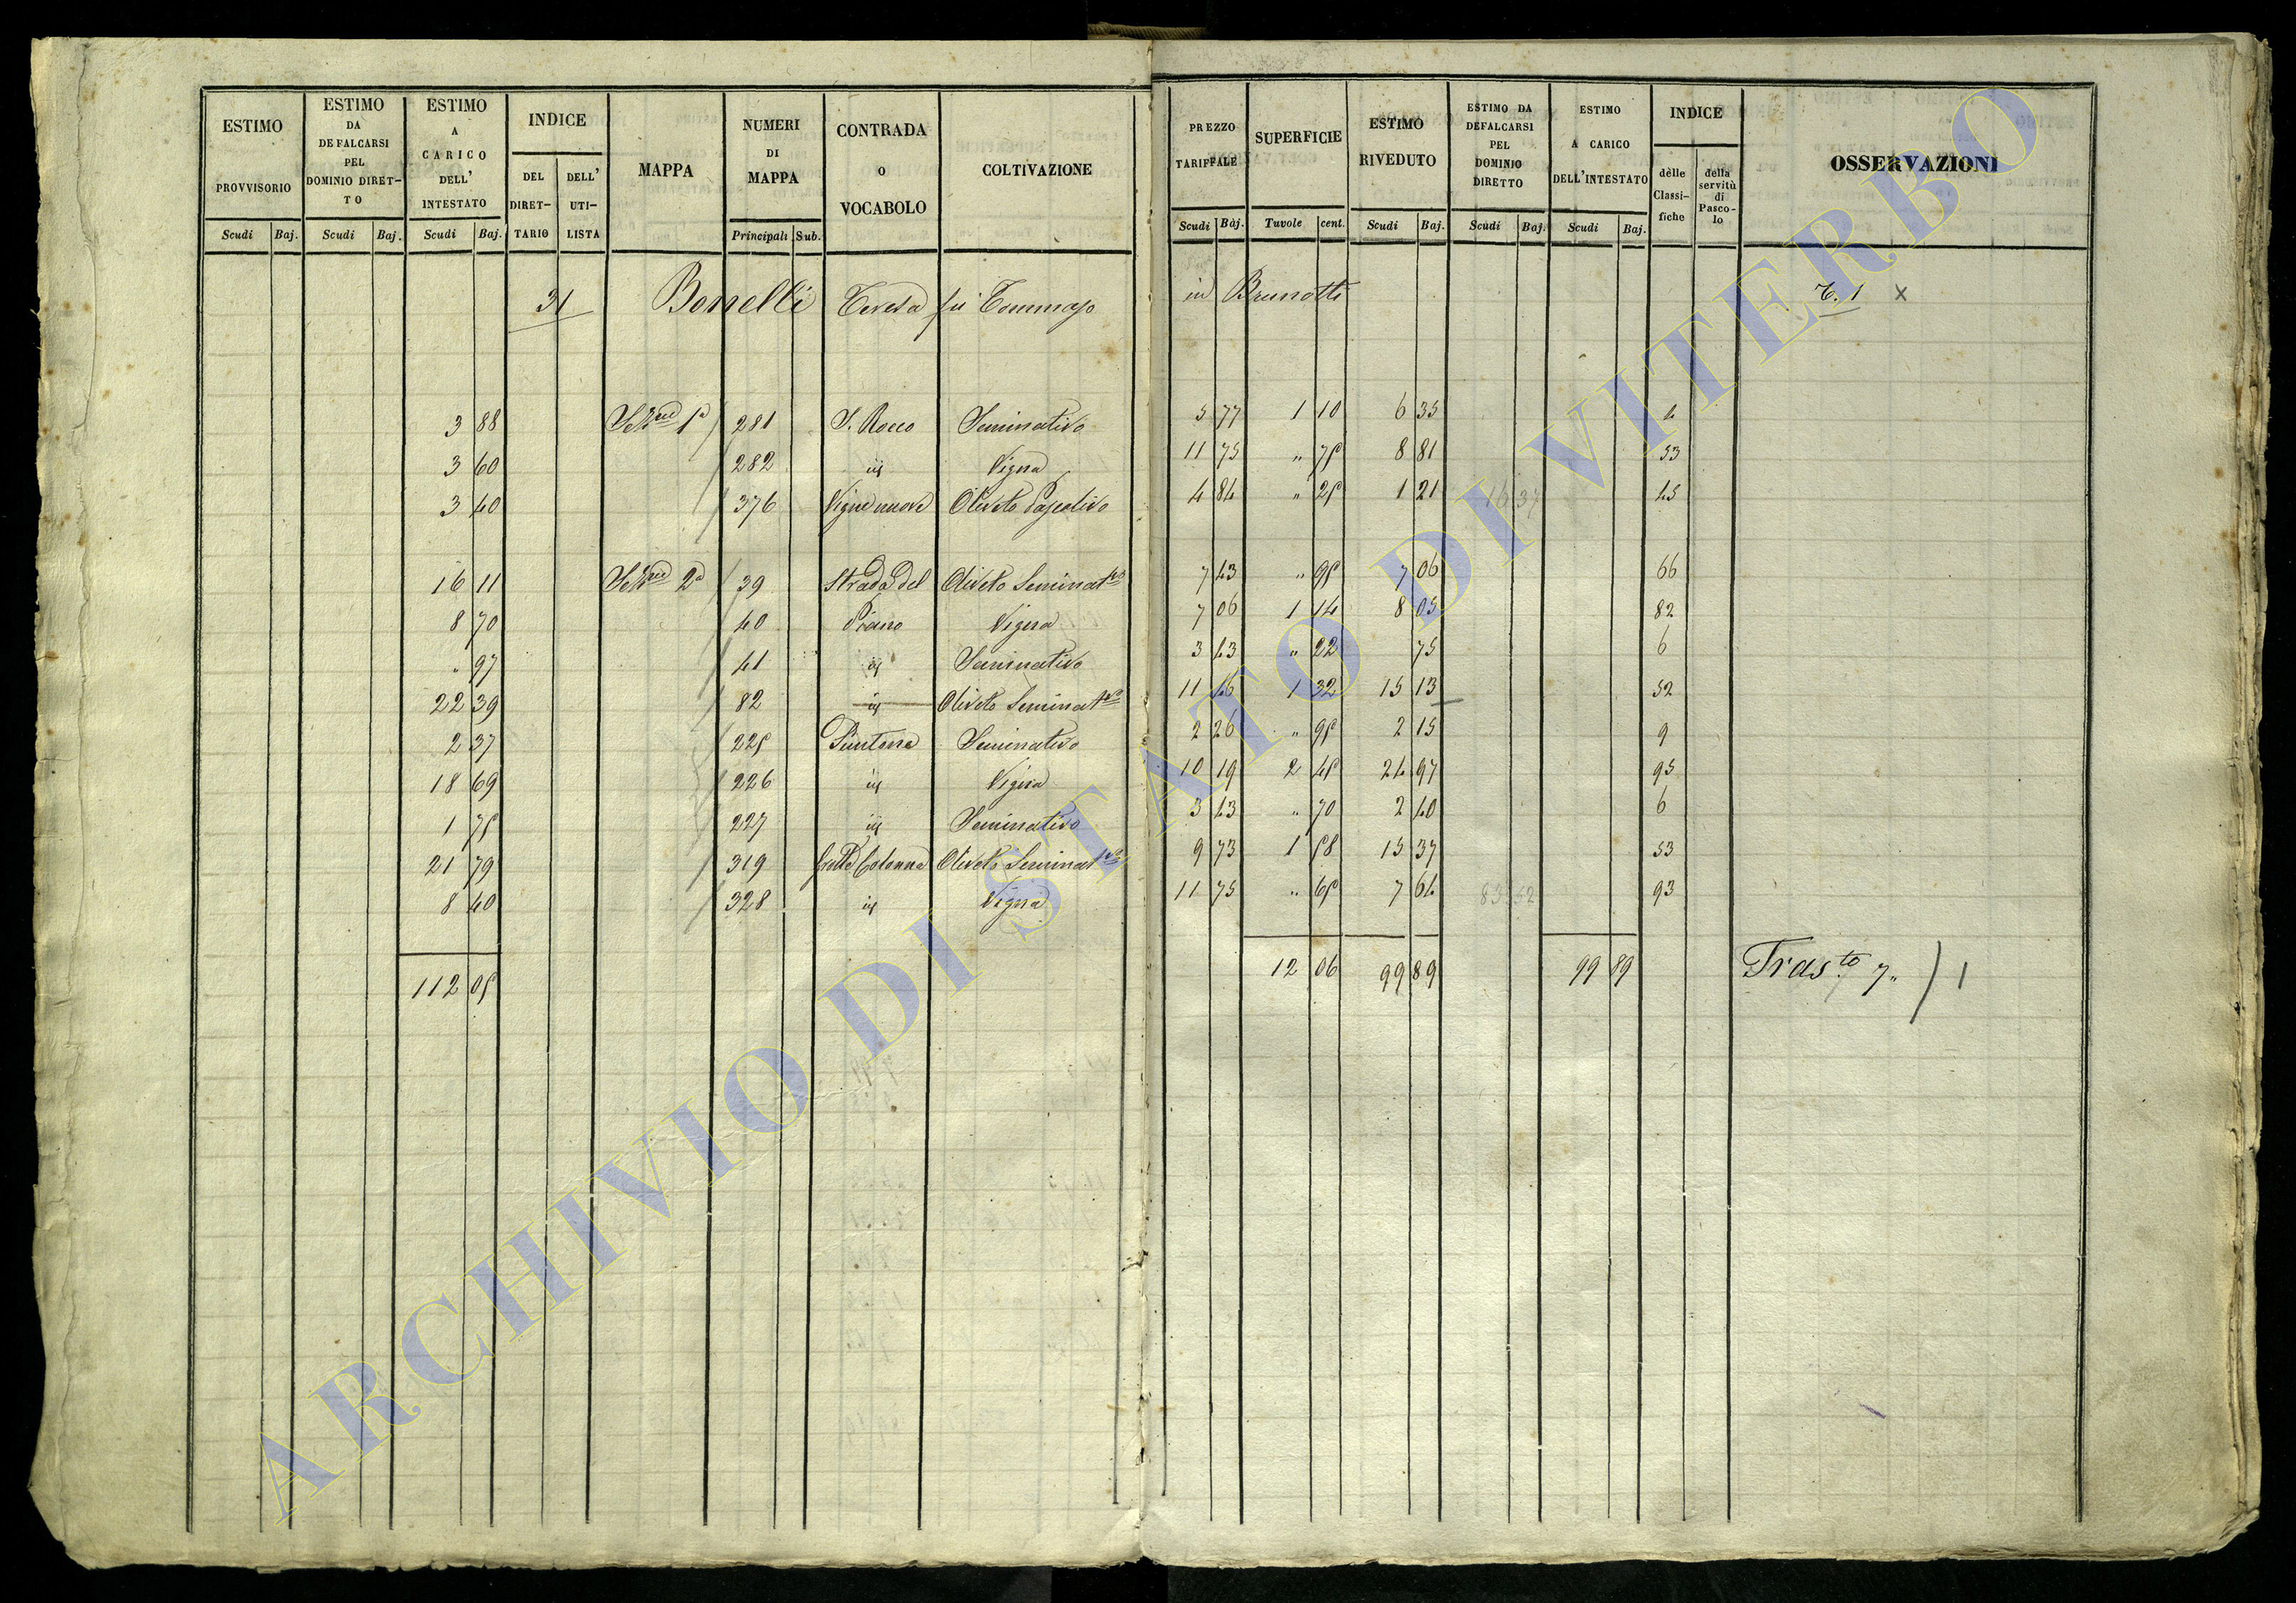 ESTIMO PROVVISORIO Scudi Baj.
ESTIMO DA DEFALCARSI PEL DOMINIO DIRET-TO Scudi Baj.
ESTIMO A CARICO DELL' INTESTATO Scudi Baj.
INDICE DEL DIRET-TARIO DELL' UTI-LISTA
MAPPA
NUMERI DI MAPPA Principali Sub.
CONTRADA O VOCABOLO
COLTIVAZIONE
PREZZO TARIFFALE Scudi Baj.
SUPERFICIE Tavole cent.
ESTIMO RIVEDUTO Scudi Baj.
ESTIMO DA DEFALCARSI PEL DOMINIO DIRETTO Scudi Baj.
ESTIMO A CARICO DELL'INTESTATO Scudi Baj.
INDICE delle Classi-fiche della servitù di Pasco-lo
OSSERVAZIONI
31 Bonelli Teresa fu Tommaso in Brunotti T. 1 x
3 88 Sez.ne 1a 281 S. Rocco Seminativo 5 77 1 10 6 35 4
3 60 282 id Vigna 11 75 " 75 8 81 53
3 40 376 Vigne nuove Oliveto Pascolivo 4 84 " 25 1 21 16 37 45
16 11 Sez.ne 2a 39 Strada del Oliveto Seminat.vo 7 43 " 95 7 06 66
8 70 40 Piano Vigna 7 06 1 14 8 05 82
" 97 41 id Seminativo 3 43 " 22 75 6
22 39 82 id Oliveto Seminat.vo 11 46 1 32 15 13 52
2 37 225 Puntone Seminativo 2 26 " 95 2 15 9
18 69 226 id Vigna 10 19 2 45 24 97 95
1 75 227 id Seminativo 3 43 " 70 2 40 6
21 79 319 Grotte Colonna Oliveto Seminat.vo 9 73 1 58 15 37 53
8 40 328 id Vigna 11 75 " 65 7 64 83 52 93
112 05 12 06 99 89 99 89 Tras.to 7 " / 1
ARCHIVIO DI STATO DI VITERBO